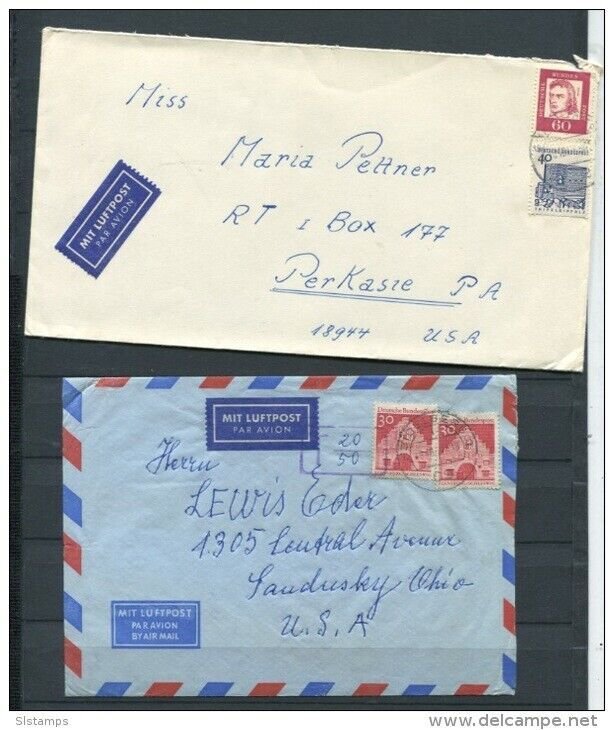 Miss
Maria Pettner
RT 1 Box 177
Perkasie PA
18944 USA
MIT LUFTPOST
PAR AVION
DEUTSCHE
BUNDES
POST
60
Deutsche Bundespost
40
TRIFELS/PFALZ
MIT LUFTPOST
PAR AVION
20
50
Deutsche Bundespost
30
30
Herrn
LEWIS Eder
1305 Central Avenue
Sandusky Ohio
U.S.A
MIT LUFTPOST
PAR AVION
BY AIR MAIL
Slstamps
www.delcampe.net